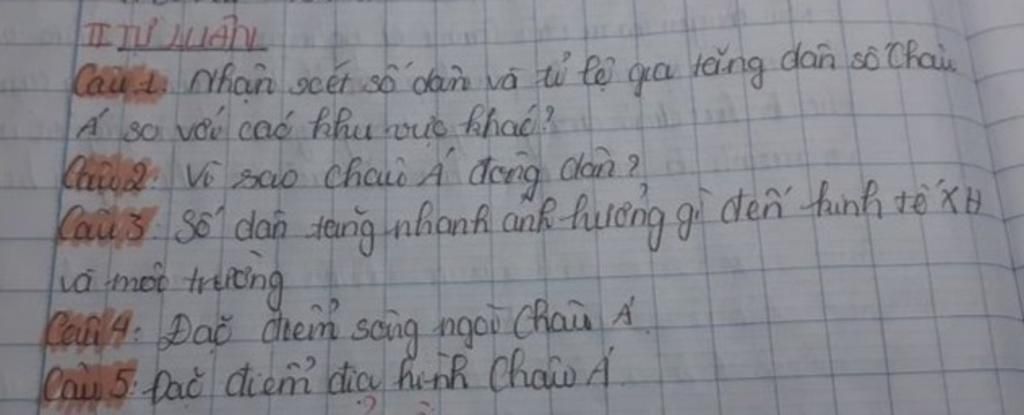 II TỰ LUẬN
Câu 1. Nhận xét số dân và tỉ lệ gia tăng dân số Châu
Á so với các khu vực khác?
Câu 2: Vì sao Châu Á đông dân?
Câu 3: Số dân tăng nhanh ảnh hưởng gì đến kinh tế XH
và môi trường
Câu 4: Đặc điểm sông ngòi Châu Á.
Câu 5: Đặc điểm địa hình Châu Á